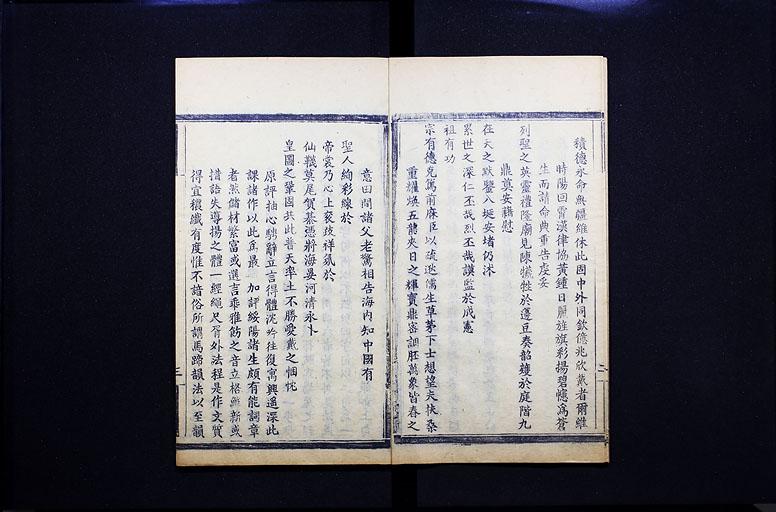 積德永命無疆維休此固中外同欽億兆欣戴者爾維
時陽回霄漢律協黃鍾日麗旌旗彩揚碧幰為蒼
生而請命典重告虔妥
列聖之英靈禮隆廟見陳犧牲於籩豆奏韶頀於庭階九
鼎奠安藉慰
在天之默鑒八埏安堵仍沐
累世之深仁丕哉烈丕哉謨監於成憲
祖有功
宗有德克篤前庥臣以疏逖儒生草茅下士想望夫扶桑
重耀煥五龍夾日之輝寶鼎密調胚萬象皆春之
二
意田間諸父老驚相告海內知中國有
聖人絢彩線於
帝裳乃心上袞歧祥氛於
仙韈莫尾賀綦憑將海晏河清永卜
皇圖之鞏固共此普天率土不勝愛戴之悃忱
原評抽心騁辭立言得體沈吟往復寓興遥深此
課諸作以此爲最 加評綏陽諸生頗有能詞章
者然儲材繁富或選吉乖雅飭之音立格鮮新或
措語失導揚之體一經繩尺胥外法程是作文質
得宜穠纖有度惟不諳俗所謂馬蹄韻法以至韻
三